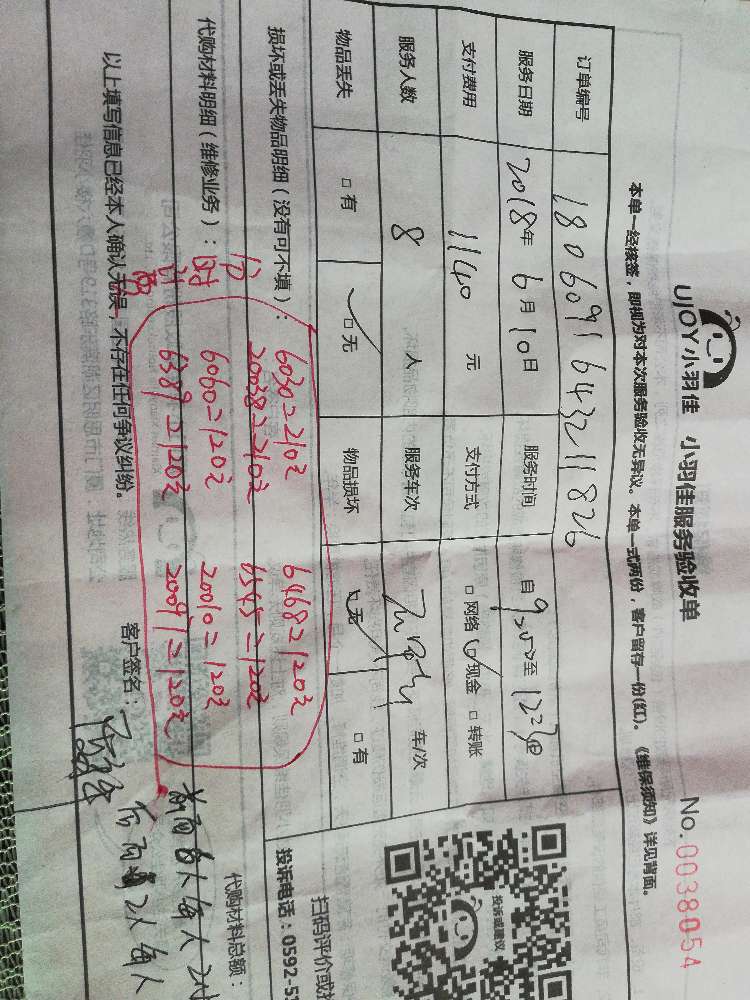 UJOY小羽佳 小羽佳服务验收单
No.0038054
本单一经接签，即视为对本次服务验收无异议。本单一式两份，客户留存一份(红)。《维保须知》详见背面。
订单编号 180609164321182
服务日期 2018年6月10日 服务时间 自9:00至12:30
支付费用 1140元 支付方式 □网络 ☑现金 □转账
服务人数 8人 服务车次 车/次
物品丢失 □有 ☑无 物品损坏 ☑无 □有
损坏或丢失物品明细（没有可不填）：
6030=210元 6468=120元
20038=210元 6545=120元
代购材料明细（维修业务）：
6060=120元 20010=120元
6389=120元 20097=120元
代购材料总额：
以上填写信息已经本人确认无误，不存在任何争议纠纷。 客户签名：
前面6人每人2
后面2人每人
投诉或建议
扫码评价或
投诉电话：0592-5